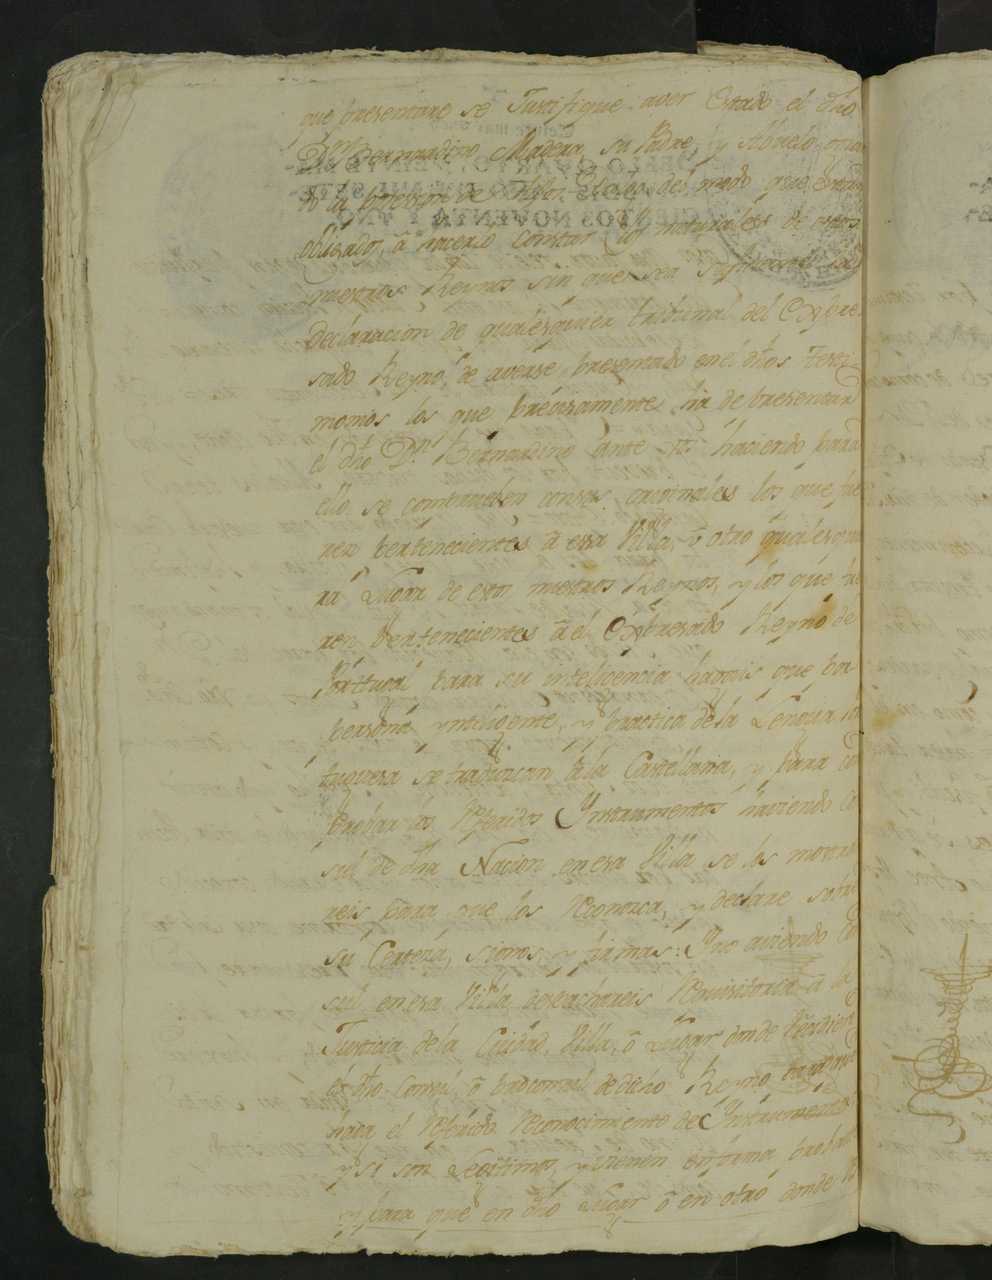 que presentare se Justifique aver estado el dho
Dn Bernardino Madera, su Padre, y Abuelo, en
la posesion de Hijos-Dalgo, del modo que
obligados, â hacerlo constar los naturales de estos
nuestros Reynos sin que sea suficiente la
declaracion de qualesquier tribunal del Expre-
sado Reyno, de averse presentado en el dhos Testi-
monios los que precisamente ha de presentar
el dho Dn Bernardino ante Vos haciendo para
ello se comprueben con sus originales los que fue
ren pertenecientes â esa Villa, ô otro qualesquie
ra Lugar de estos nuestros Reynos, y los que fue
ren pertenecientes â el Expresado Reyno de
Portugal para su inteligencia hareis que por
persona ynteligente, y practica de la Lengua Por
tuguesa se traduzcan â la Castellana, y para com
probar los referidos Ynstrumentos haviendo Con
sul de dha Nacion en esa Villa se los mostra
reis para que los reconozca, y declare sobre
su Certeza, signos, y firmas: Y no aviendo Con
sul en esa Villa despachareis requisitoria â la
Justicia de la Ciudad, Villa, ô Lugar donde residiere
el dho Consul, ô viceconsul de dicho Reyno, para que
haga el referido reconocimiento de Ynstrumentos
y si son Legitimos, y vienen en forma probante
y para que en dho Lugar ô en otro donde